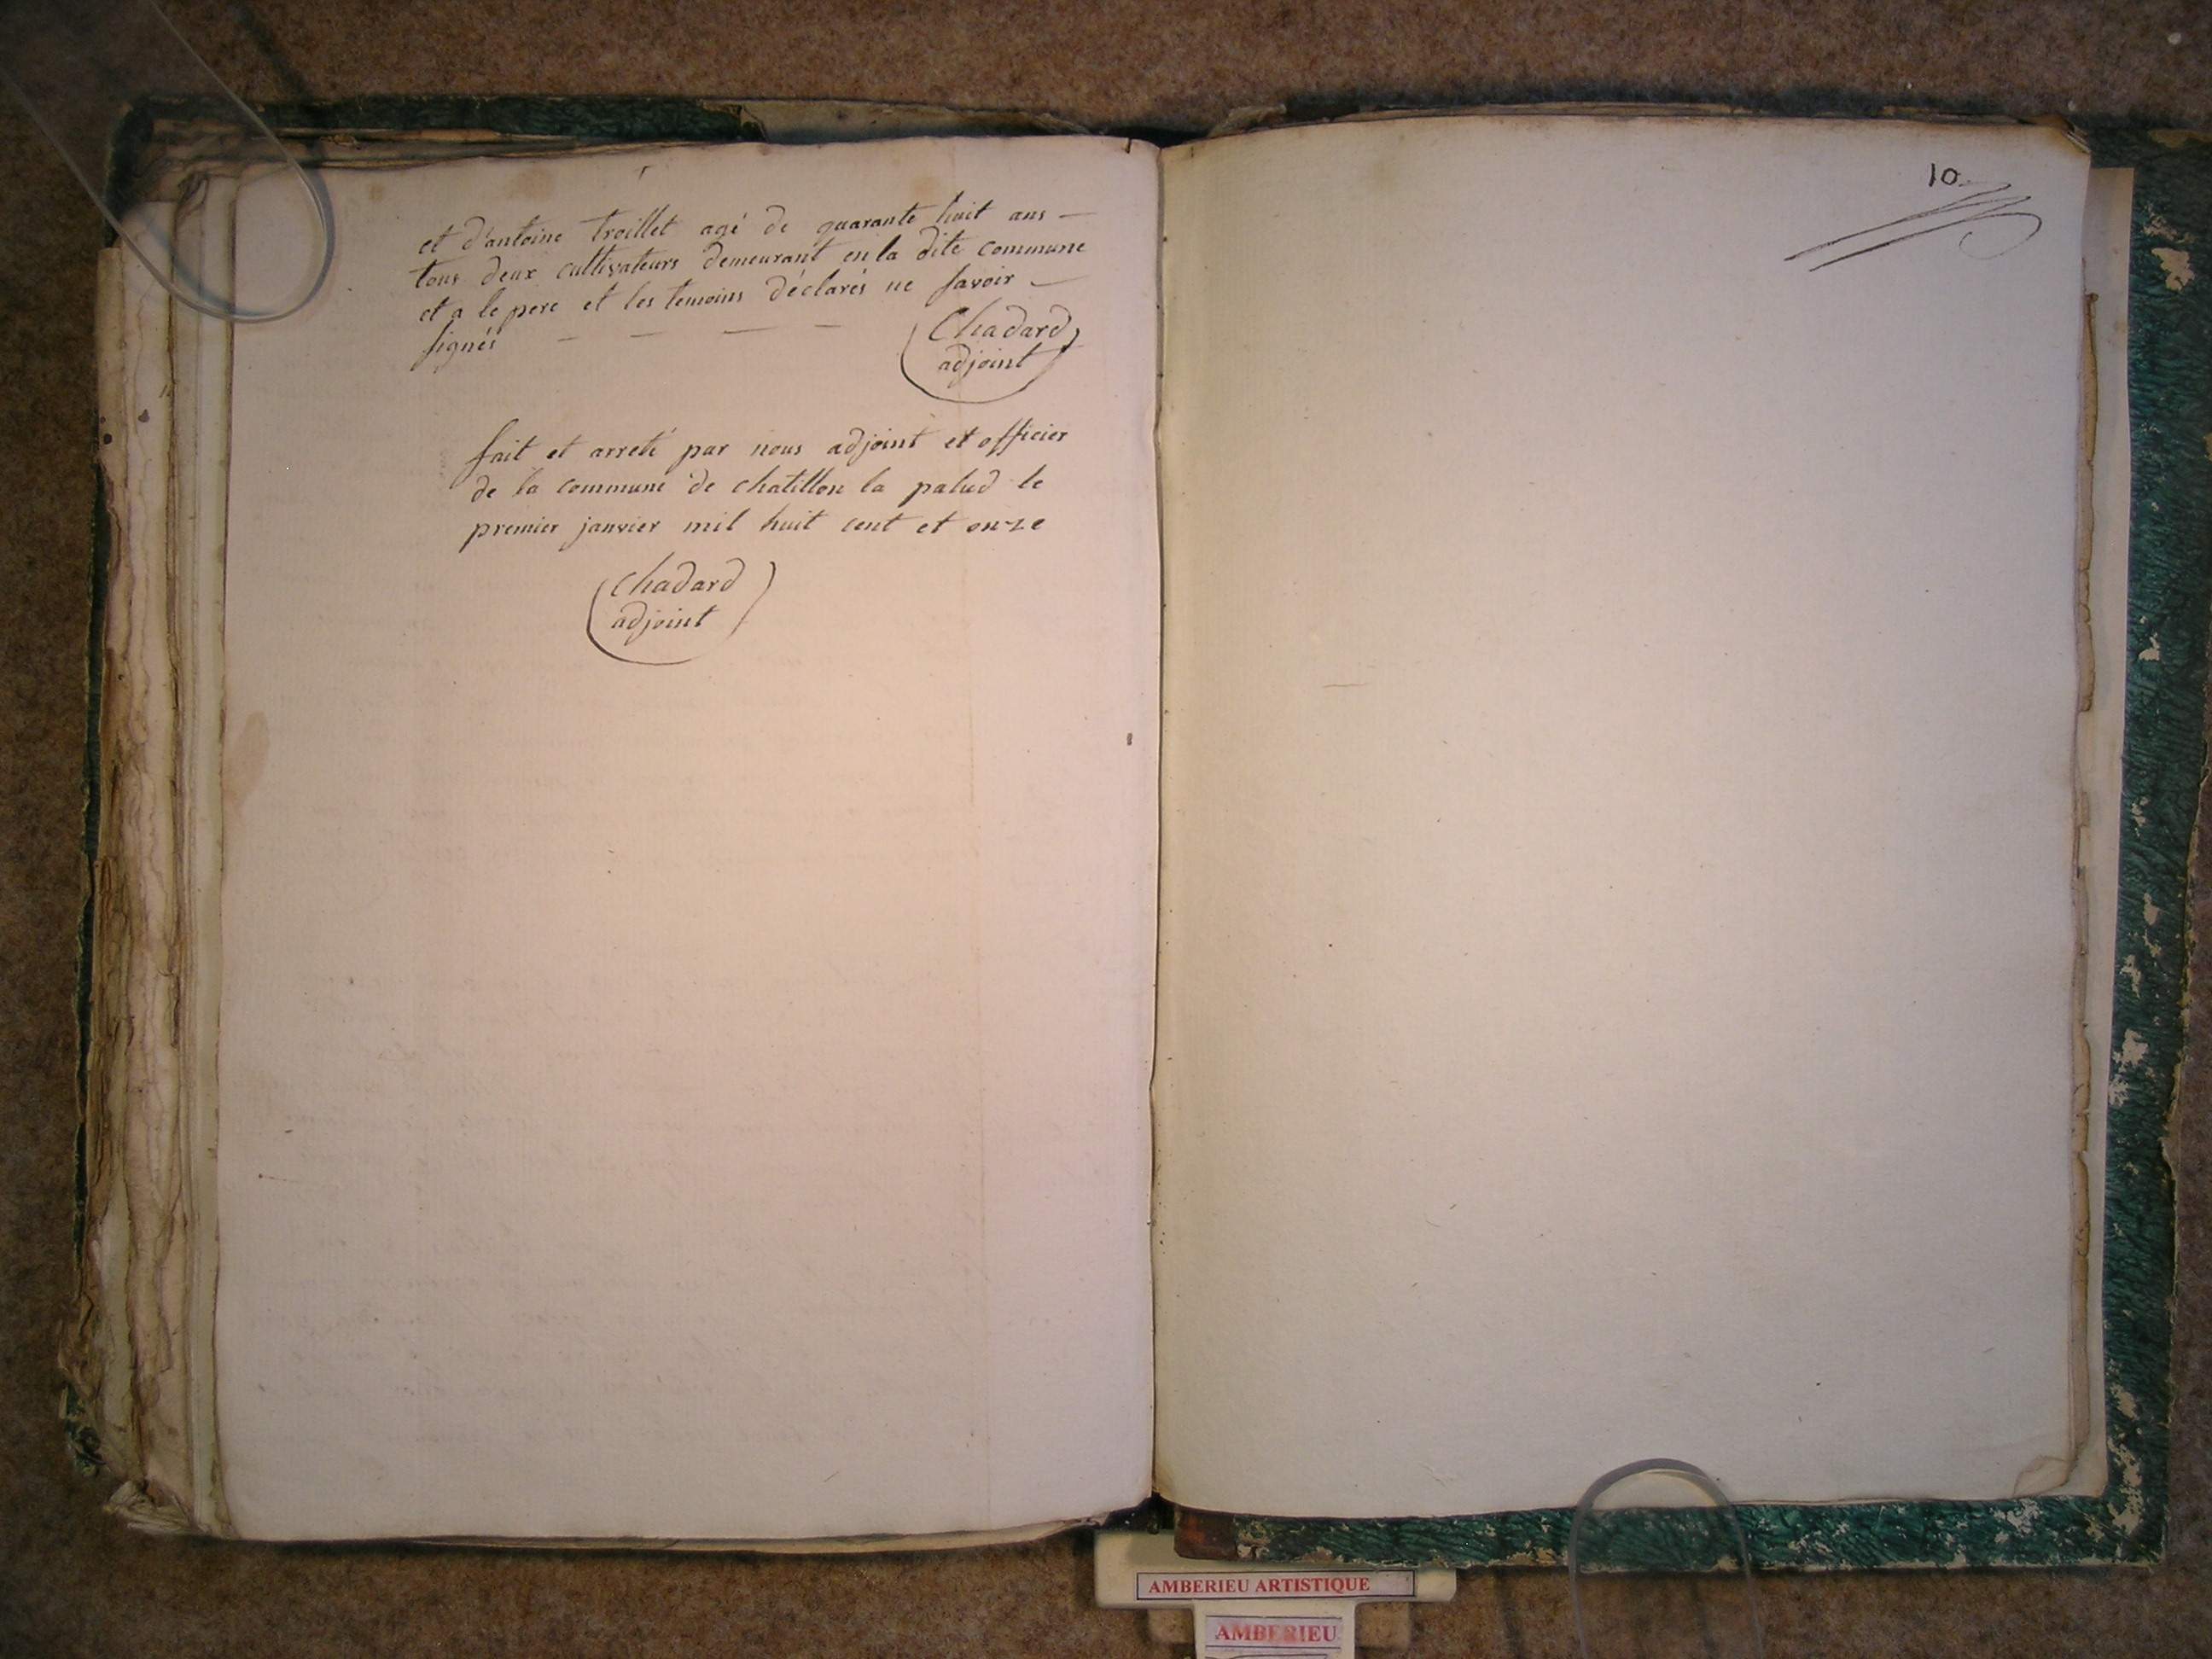 et d'antoine troillet agé de quarante huit ans —
tous deux cultivateurs demeurant en la dite commune
et a le pere et les temoins déclarés ne savoir —
signés — — — —
Chadard
adjoint
fait et arreté par nous adjoint et officier
de la commune de chatillon la palud le
premier janvier mil huit cent et onze
Chadard
adjoint
10
AMBERIEU ARTISTIQUE
AMBERIEU